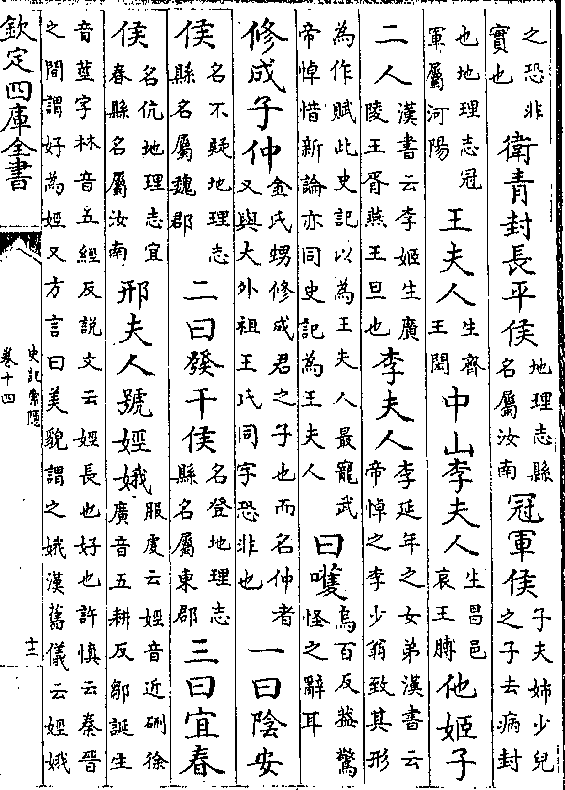 之恐非實也衛青封長平侯地理志縣名屬汝南冠軍侯子夫姊少兒之子去病封
也地理志冠軍屬河陽王夫人生齊王閎中山李夫人生昌邑哀王髆他姬子
二人漢書云李姬生廣陵王胥燕王旦也李夫人李延年之女弟漢書云帝悼之李少翁致其形
為作賦此史記以為王夫人最寵武帝悼惜新論亦同史記為王夫人曰嚄烏百反蓋驚怪之辭耳
修成子仲金氏甥修成君之子也而名仲者又與大外祖王氏同字恐非也一曰陰安
侯名不疑地理志縣名屬魏郡二曰發干侯名登地理志縣名屬東郡三曰宜春
侯名伉地理志宜春縣名屬汝南邢夫人號娙娥服虔云娙音近硎徐廣音五耕反鄒誕生
音莖字林音五經反說文云娙長也好也許慎云秦晉之間謂好為娙又方言曰美貌謂之娥漢舊儀云娙娥
欽定四庫全書
史記索隱
卷十四
十二